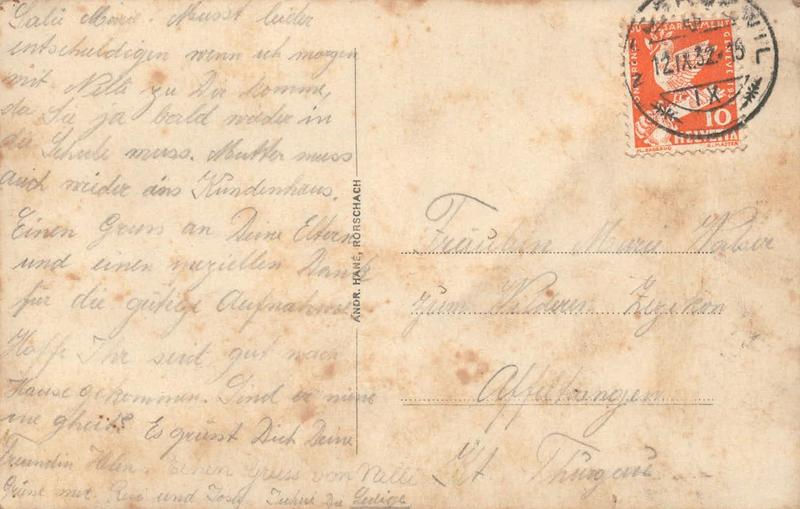 Salü Marie. Musst leider
entschuldigen wenn ich morgen
mit Nelli zu Dir komme,
da Sie ja bald wieder in
die Schule muss. Mutter muss
auch wieder ins Kundenhaus.
Einen Gruss an Deine Eltern
und einen speziellen Dank
für die gütige Aufnahme
Hoffe Ihr seid gut nach
Hause gekommen. Sind er nime
Es grüsst Dich Deine
Freundin Helen. Einen Gruss von Nelli
und Josy Du Ledige
ANDR. HANE, RORSCHACH
WIL
12.IX.32.
IX
10
HELVETIA
Fräulein Marie Walser
zum Wilden Zezikon
Affeltrangen
Kt Thurgau